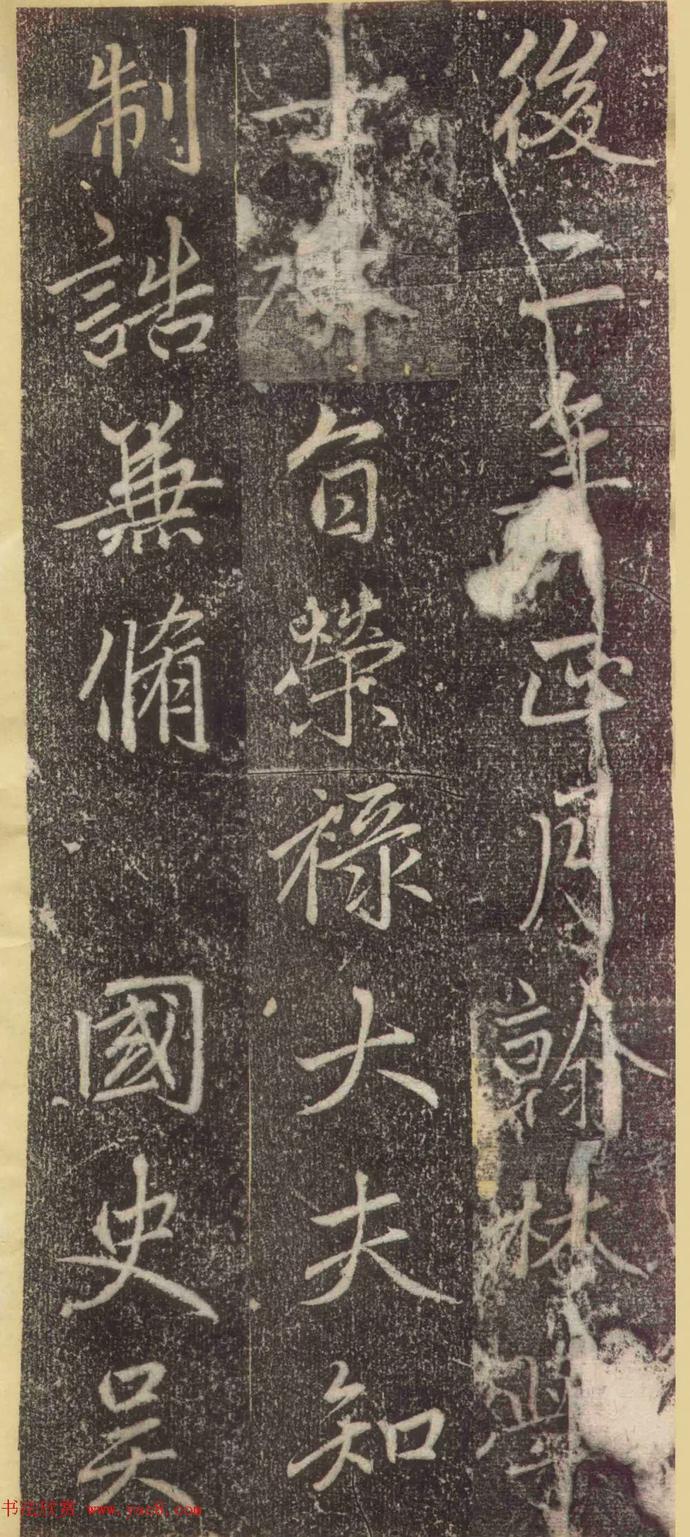 後二年正月翰林學
士承旨榮祿大夫知
制誥兼脩 國史吴
书法欣赏 www.yac8.com